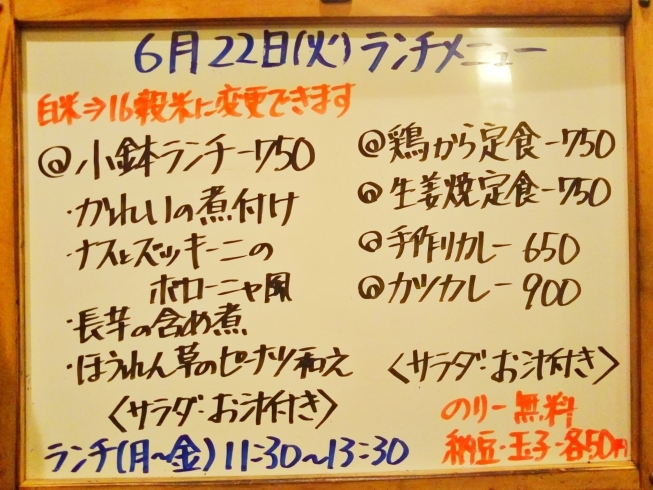 6月22日(火)ランチメニュー
白米⇒16穀米に変更できます
@小鉢ランチー750
・かれいの煮付け
・ナスとズッキーニの
ボローニャ風
・長芋の含め煮
・ほうれん草のピーナツ和え
〈サラダ・お汁付き〉
@鶏から定食ー750
@生姜焼定食ー750
@手作りカレー650
@カツカレー900
〈サラダ・お汁付き〉
のりー無料
納豆・玉子・各50円
ランチ(月〜金)11:30〜13:30